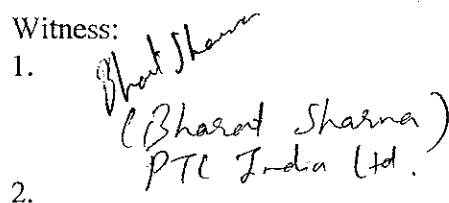 Witness:
1.
Bharat Sharma
(Bharat Sharma)
PTC India Ltd.
2.